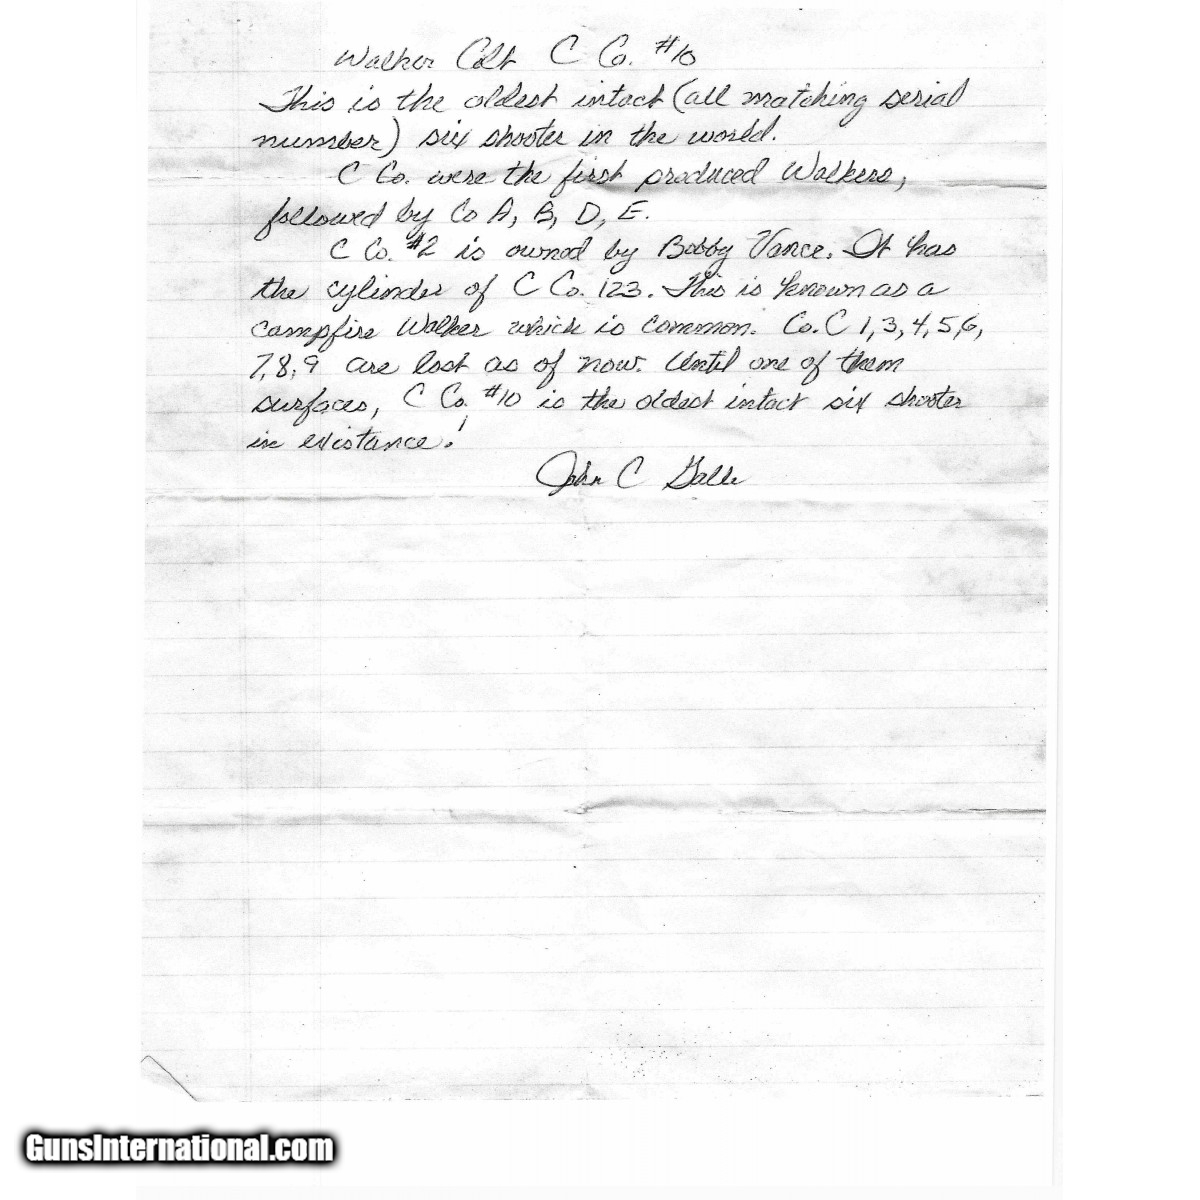 Walker Colt C Co. #10
This is the oldest intact (all matching serial
number) six shooter in the world.
C Co. were the first produced Walkers,
followed by Co A, B, D, E.
C Co. #2 is owned by Bobby Vance. It has
the cylinder of C Co. 123. This is known as a
campfire Walker which is common. Co. C 1, 3, 4, 5, 6,
7, 8, 9 are lost as of now. Until one of them
surfaces, C Co. #10 is the oldest intact six shooter
in existance!
John C
GunsInternational.com